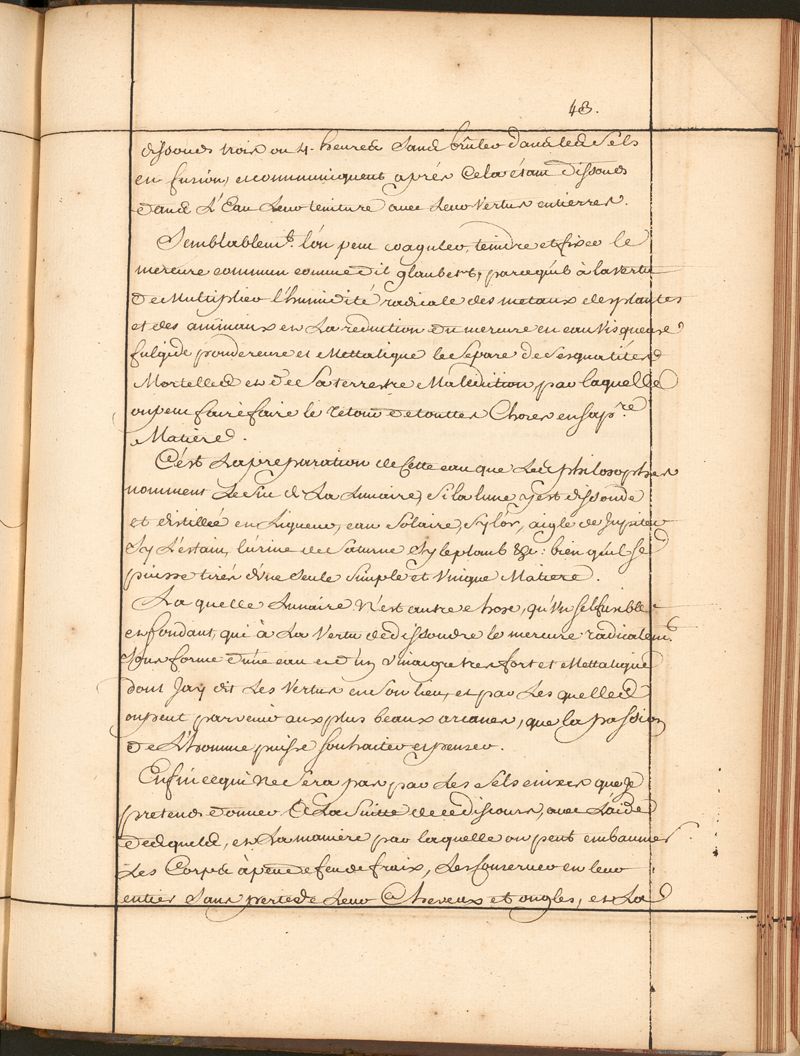 43.
dissouds trois ou 4. heures sans brûler dans les Sels
en fusion, et communiquent après Cela étant dissouds
dans L'Eau Leur teinture avec Leur Vertus entierres.
Semblablemt. l'on peut coaguler, teindre et fixer le
mercure commun comme dit glauber, parcequ'il à la vertu
de Multiplier l'humidité radicale des metaux des plantes
et des animaux en La reduction du mercure en eau Visqueuse
fulgide pondereuse et Mettalique le Separe de Ses qualités
Mortelles et de Sa terrestre Malediction, par laquelle
on peut faire faire le retour de touttes Choses en sa pre
Matiere.
C'est La preparation de Cette eau que Les philosophes
nomment Le Suc de La Lunaire, Si la lune y est dissoude
et distillée en Liqueur, eau Solaire, Sy l'or, aigle de Jupiter
Sy L'estain, l'urine de Saturne Sy le plomb &c: bien qu'il se
puisse tirer d'une Seule Simple et Vnique Matiere.
La quelle Lunaire N'est autre chose, qu'Vn Sel fusible
en fondant, qui à La Vertu de dissoudre le mercure radicalemt.
Sous forme d'une eau et d'un Vinaigre tres fort et Mettalique
dont J'ay dit Les Vertus en Son lieu, et par Les quelles
on peut parvenir aux plus beaux arcanes, que la passion
de L'homme puisse souhaiter et penser.
Enfin ce qui Ne Sera pas par Les Sels enixes que je
pretends donner à La Suitte de ce discours, avec L'aide
desquels, et La maniere par laquelle on peut embaumer
Les Corps à peu de feu de fraix, Les Conserver en leur
entier Sans perte de Leur Cheveux et ongles, et La